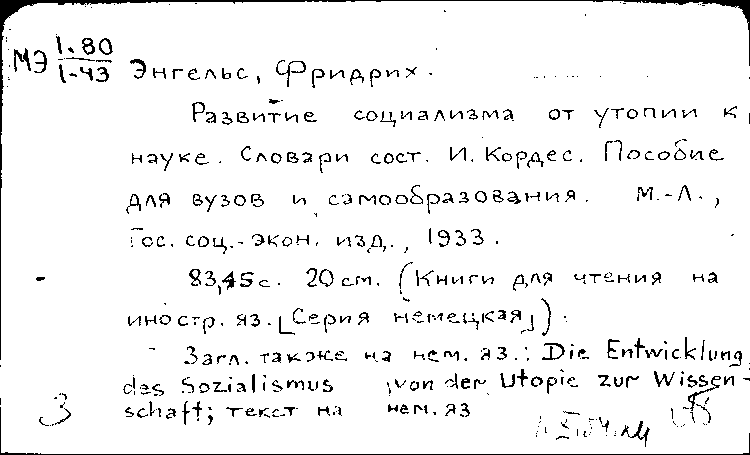 МЭ 1.80
1-43
Энгельс, Фридрих.
Развитие социализма от утопии к
науке. Словари сост. И. Кордес. Пособие
для вузов и самообразования. М.-Л.,
Гос. соц.-экон. изд., 1933.
83,45 с. 20 см. (Книги для чтения на
иностр. яз. [Серия немецкая]).
Загл. также на нем. яз.: Die Entwicklung
des Sozialismus von der Utopie zur Wissen-
schaft; текст на нем. яз
З